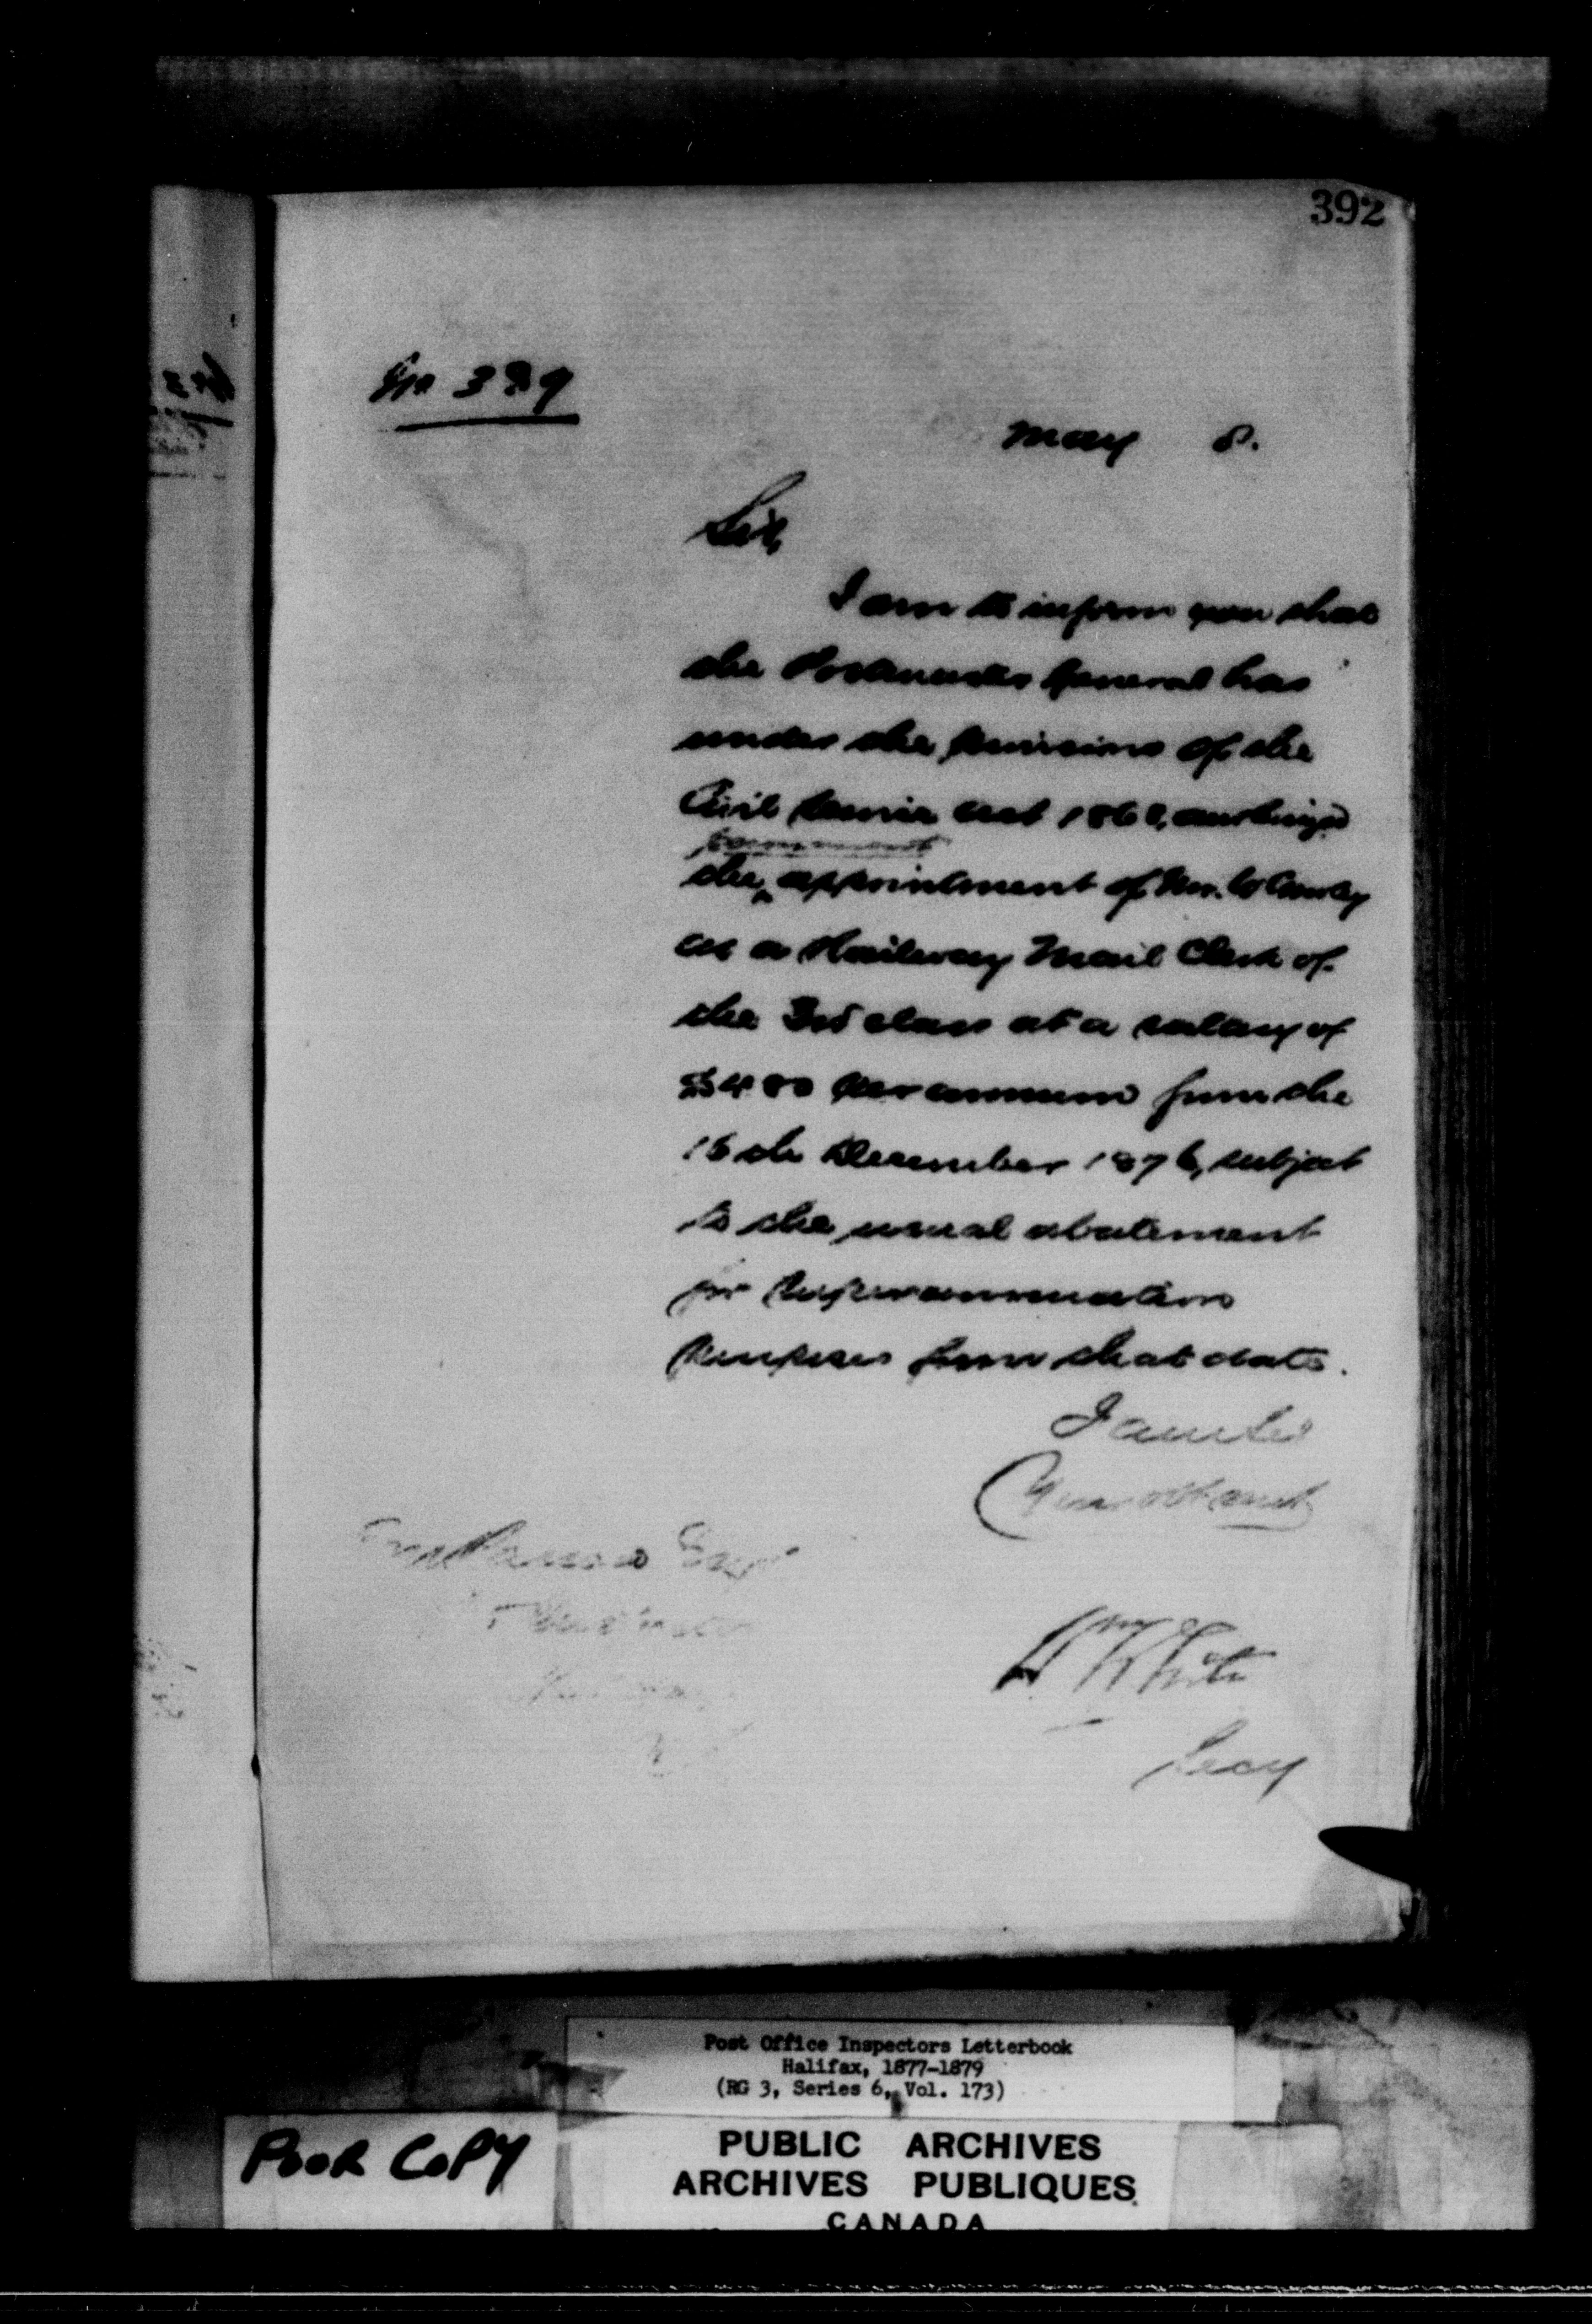 392
No 389
May 8.
Sir,
I am to inform you that
the Postmaster General has
under the provisions of the
Civil Service Act 1868, authorized
permanent
the appointment of Mr. W
as a Railway Mail Clerk of
the 3rd class at a salary of
$480 per annum from the
15th December 1876, subject
to the usual abatement
for Superannuation
purposes from that date.
I am Sir
Your obt servt
Esqr
Wm White
Secy
Post Office Inspectors Letterbook
Halifax, 1877-1879
(RG 3, Series 6, Vol. 173)
POOR COPY
PUBLIC ARCHIVES
ARCHIVES PUBLIQUES
CANADA